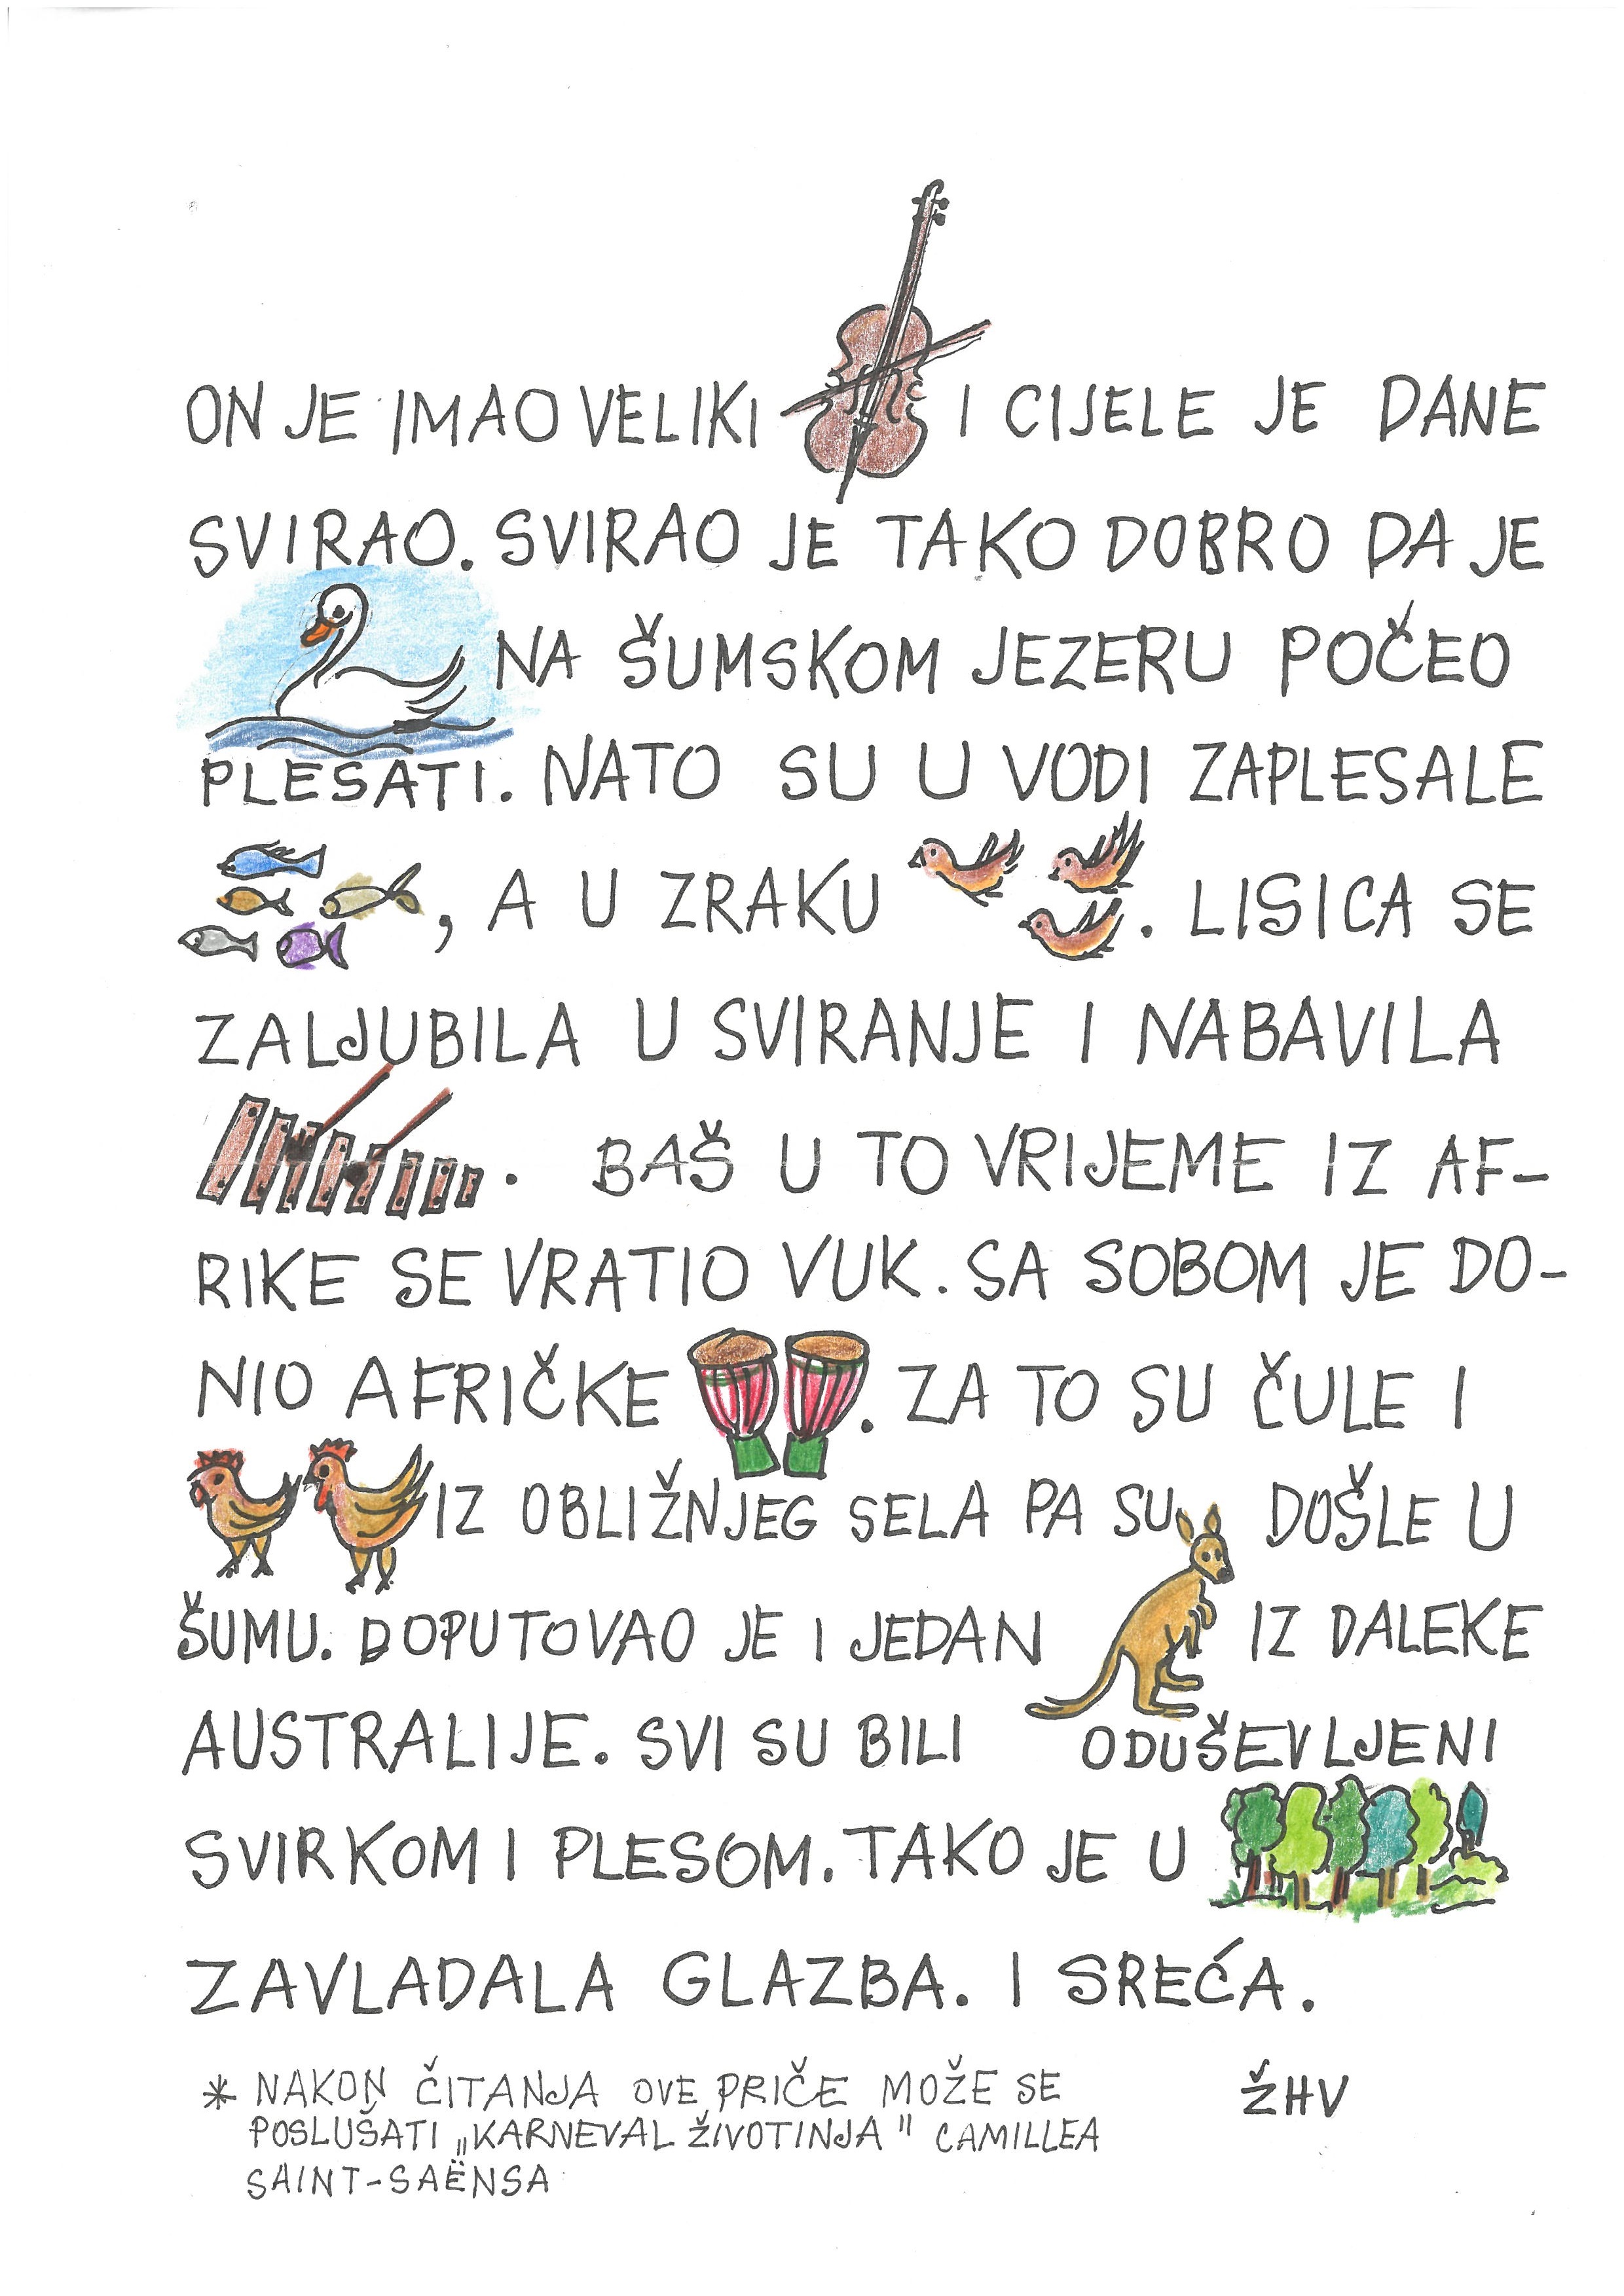 ON JE IMAO VELIKI I CIJELE JE DANE
SVIRAO. SVIRAO JE TAKO DOBRO DA JE
NA ŠUMSKOM JEZERU POČEO
PLESATI. NATO SU U VODI ZAPLESALE
, A U ZRAKU . LISICA SE
ZALJUBILA U SVIRANJE I NABAVILA
. BAŠ U TO VRIJEME IZ AF-
RIKE SE VRATIO VUK. SA SOBOM JE DO-
NIO AFRIČKE . ZA TO SU ČULE I
IZ OBLIŽNJEG SELA PA SU DOŠLE U
ŠUMU. DOPUTOVAO JE I JEDAN IZ DALEKE
AUSTRALIJE. SVI SU BILI ODUŠEVLJENI
SVIRKOM I PLESOM. TAKO JE U
ZAVLADALA GLAZBA. I SREĆA.
* NAKON ČITANJA OVE PRIČE MOŽE SE
POSLUŠATI „KARNEVAL ŽIVOTINJA" CAMILLEA
SAINT-SAËNSA
ŽHV